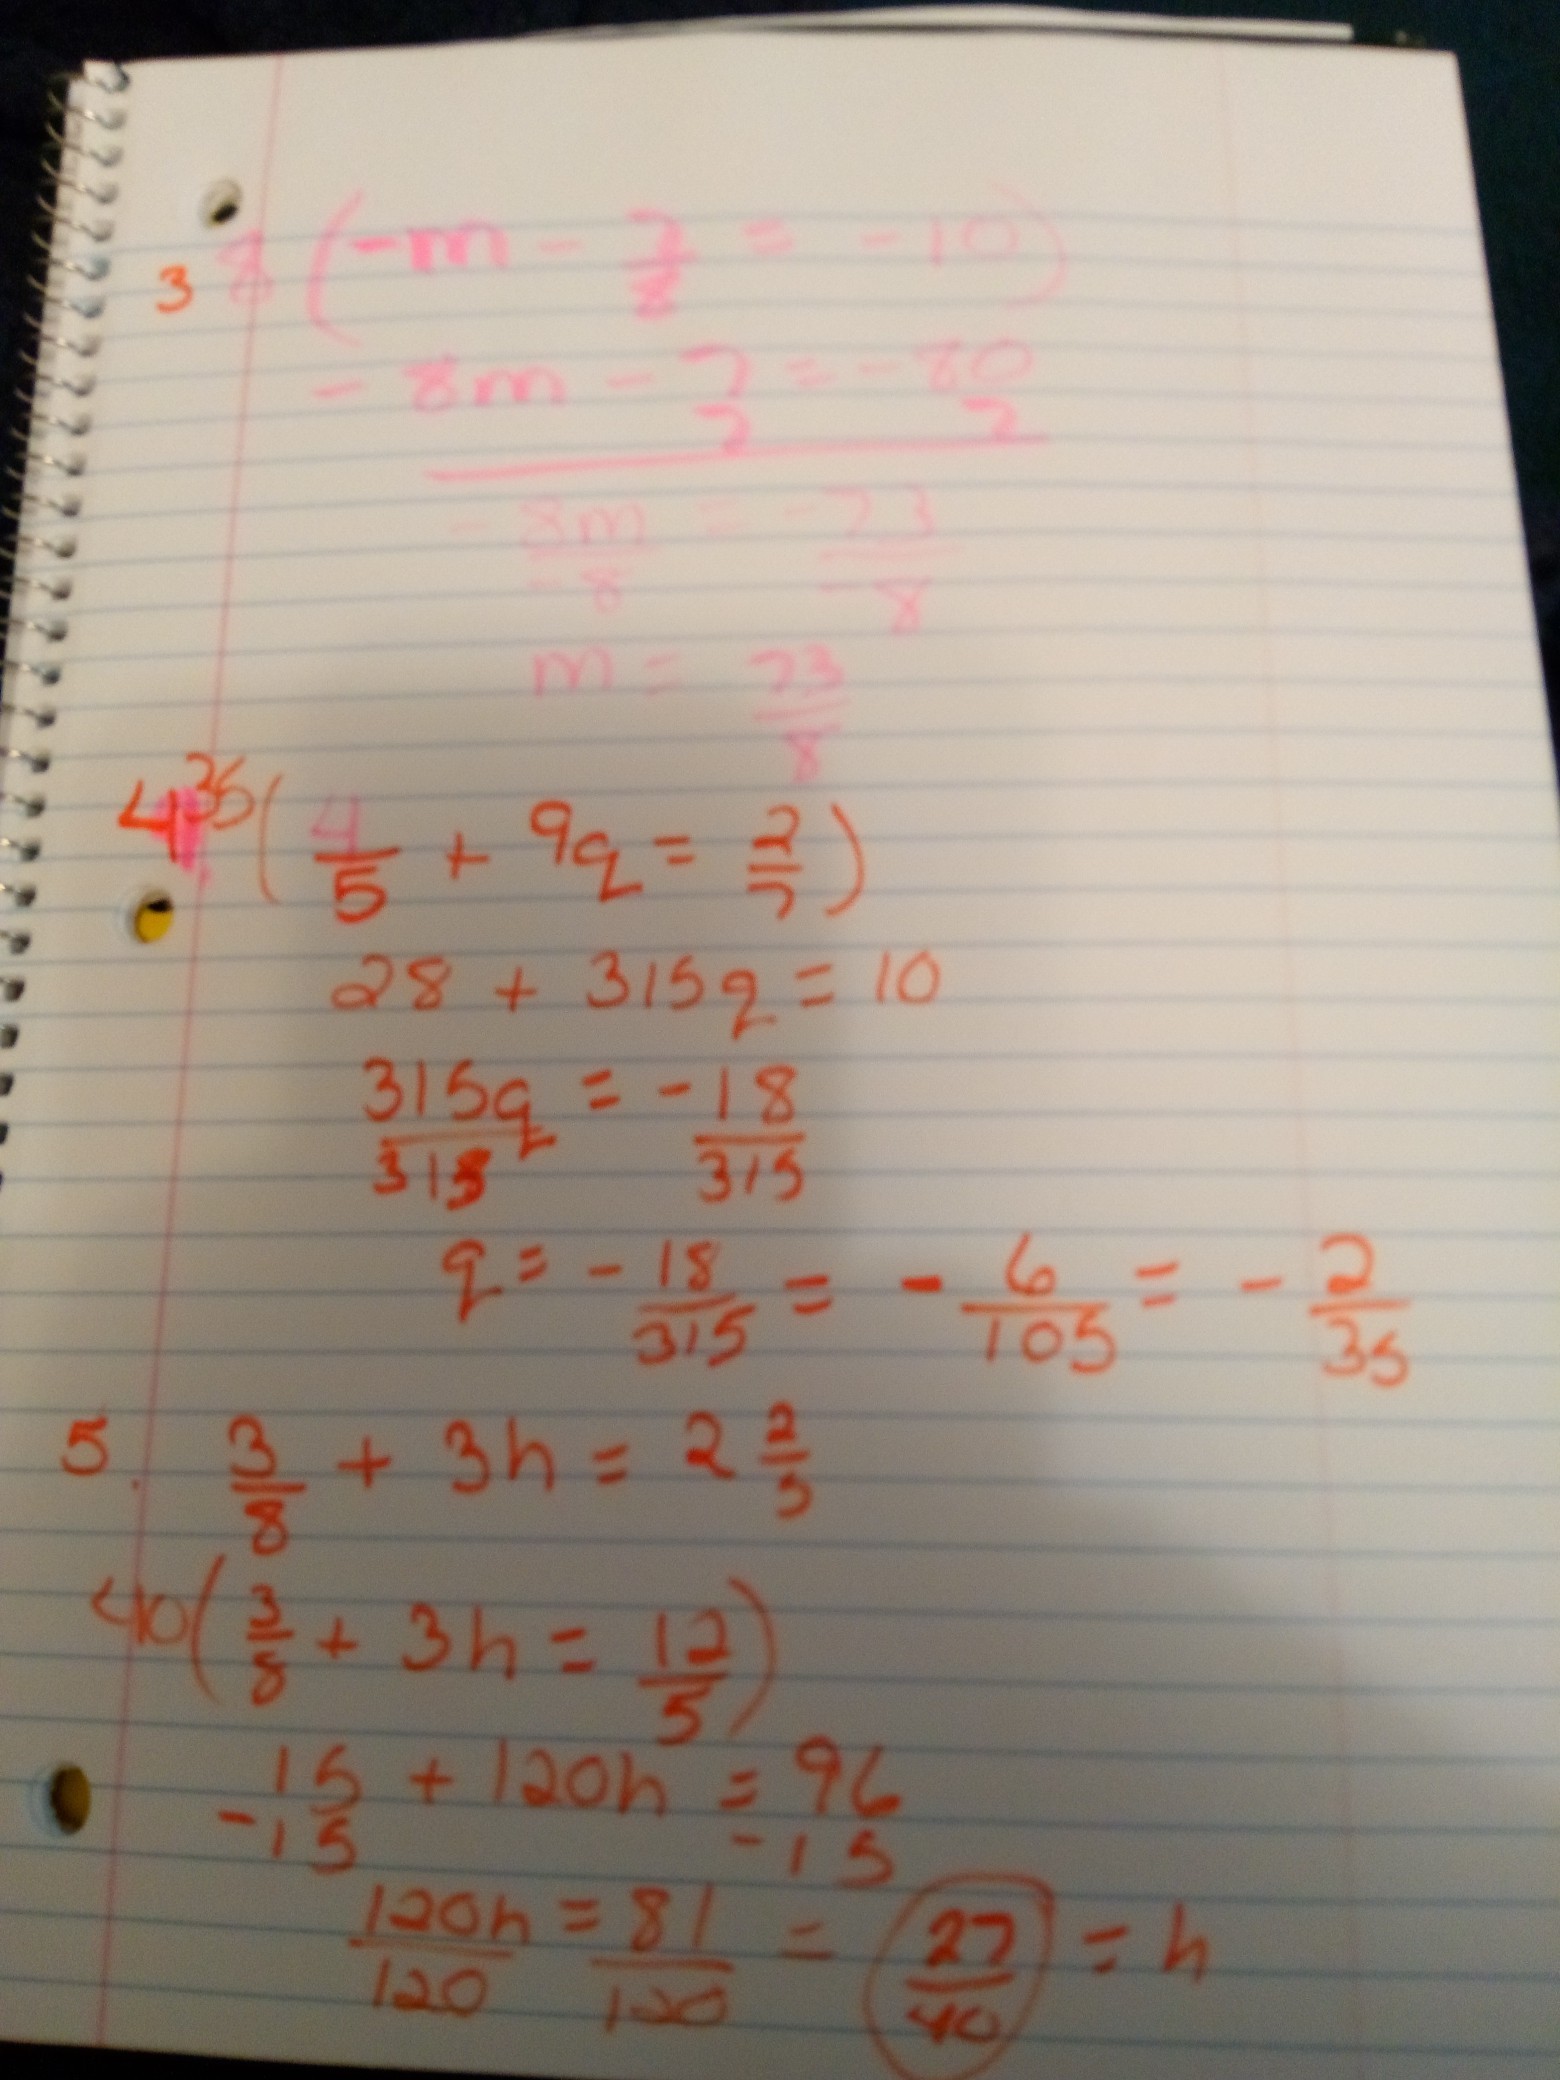 3 8 (-m - 7/8 = -10)
- 8m - 7 = -80
7 7
- 8m/-8 = -73/-8
m = 73/8
4 35 (4/5 + 9q = 2/7)
28 + 315q = 10
315q/315 = -18/315
q = - 18/315 = - 6/105 = - 2/35
5. 3/8 + 3h = 2 2/5
40 (3/8 + 3h = 12/5)
15 + 120h = 96
-15 -15
120h/120 = 81/120 = 27/40 = h